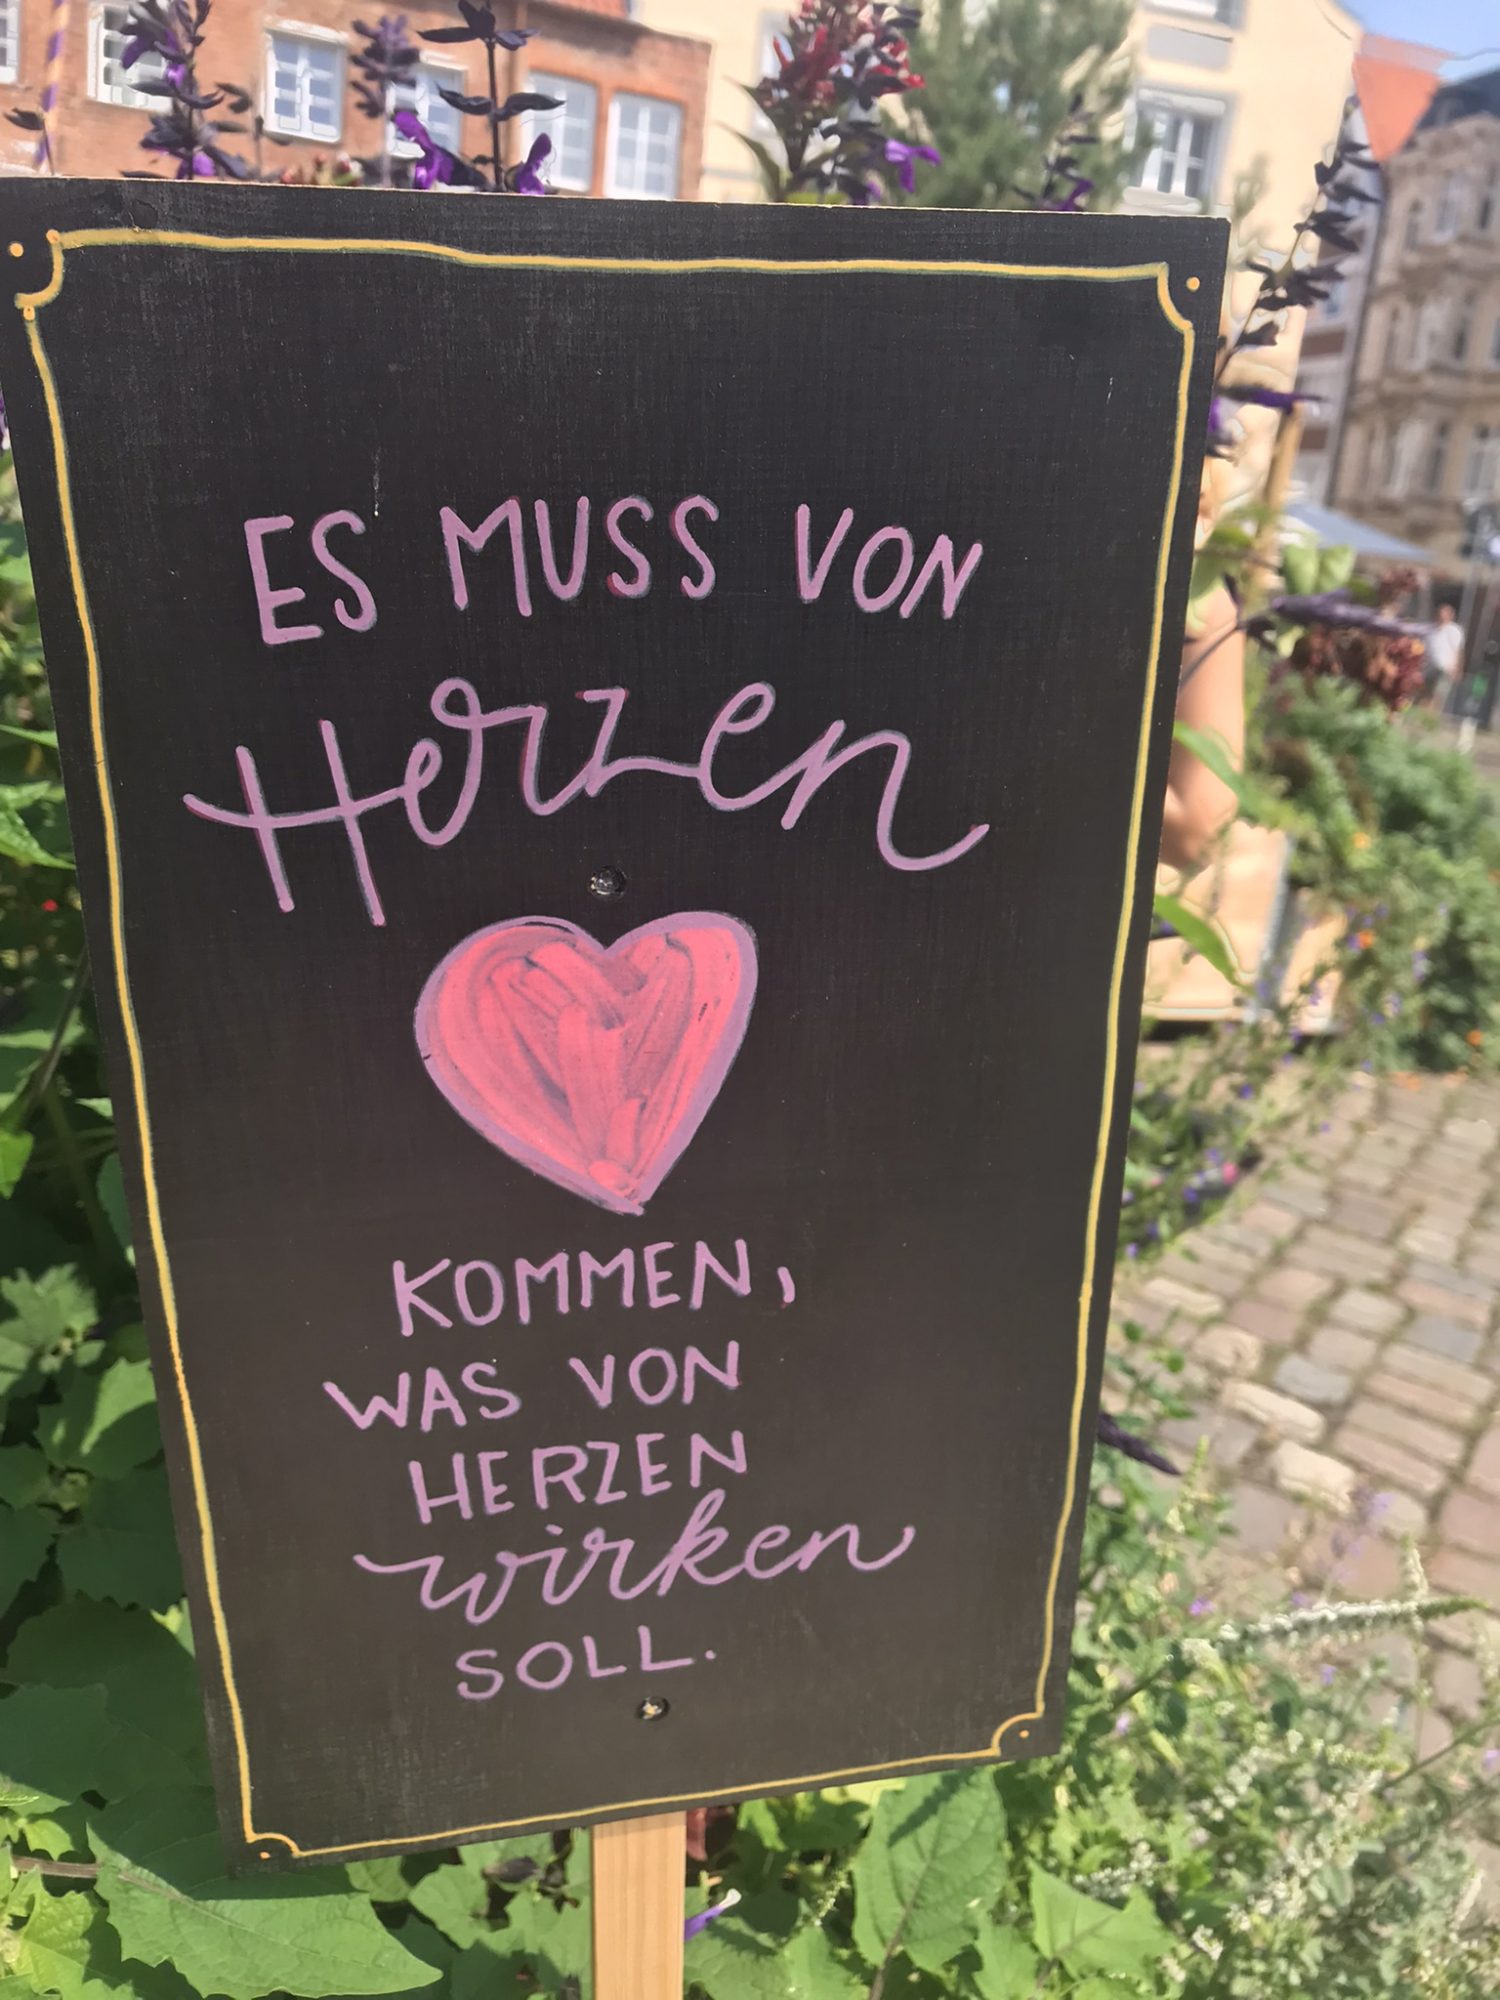 ES MUSS VON
Herzen
KOMMEN,
WAS VON
HERZEN
wirken
SOLL.